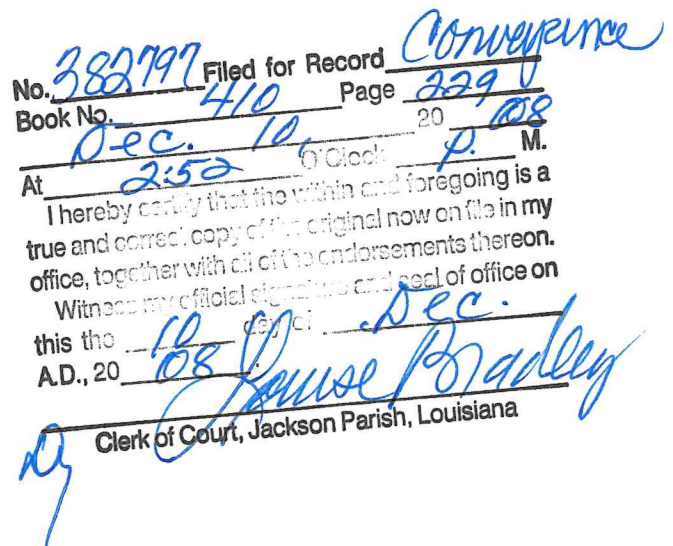 No. 382797 Filed for Record Conveyance
Book No. 410 Page 229
Dec. 10, 20 08
At 2:52 O'Clock P. M.
I hereby certify that the within and foregoing is a
true and correct copy of the original now on file in my
office, together with all of the endorsements thereon.
Witness my official signature and seal of office on
this the 10 day of Dec.
A.D., 20 08 Louise Bradley
Dy Clerk of Court, Jackson Parish, Louisiana